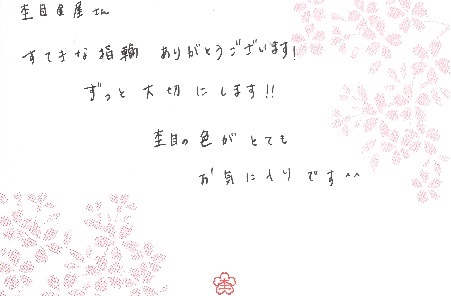 杢目金屋さん
すてきな指輪 ありがとうございます!
ずっと大切にします!!
杢目の色がとても
お気に入りです^^